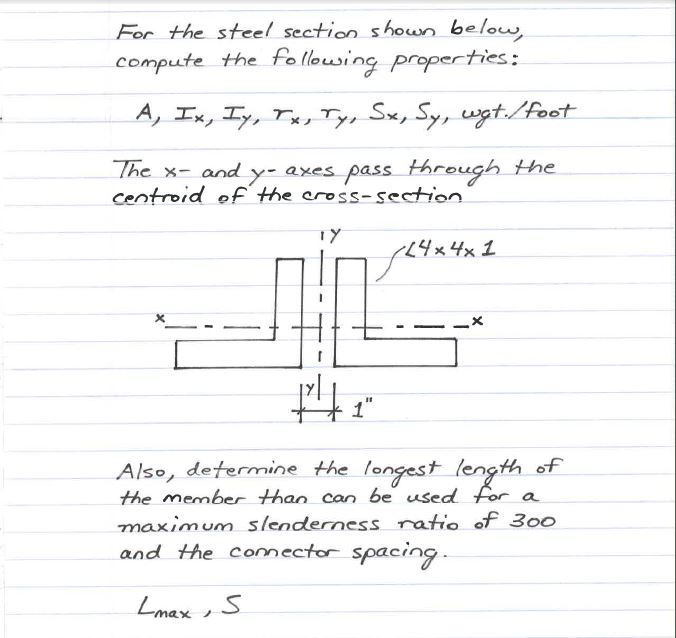 For the steel section shown below,
compute the following properties:
A, Ix, Iy, rx, ry, Sx, Sy, wgt./foot
The x- and y-axes pass through the
centroid of the cross-section
Y
L4x4x1
x
x
Y
1"
Also, determine the longest length of
the member than can be used for a
maximum slenderness ratio of 300
and the connector spacing.
Lmax, S